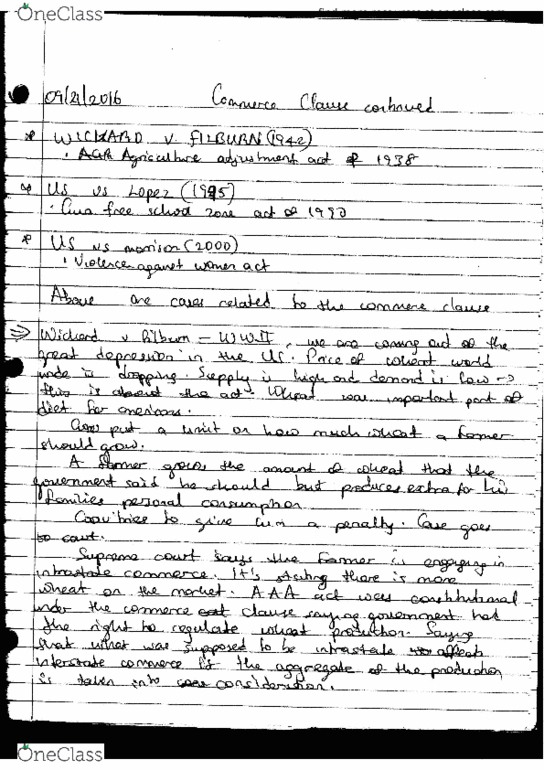 OneClass
09/21/2016 Commerce Clause continued
* WICKARD V. FILBURN (1942)
· Agriculture adjustment act of 1938
* US vs Lopez (1995)
· Gun free school zone act of 1990
* US vs morrison (2000)
· Violence against women act
Above are cases related to the commerce clause
⇒ Wickard v Filburn - WWII, we are coming out of the
great depression in the US. Price of wheat world
wide is dropping. Supply is high and demand is low →
this is about the act. Wheat was important part of
diet for americans.
Gov put a limit on how much wheat a farmer
should grow.
A farmer grows the amount of wheat that the
government said he should but produces extra for his
families personal consumption.
Gov tries to give him a penalty. Case goes
to court.
Supreme court says the farmer is engaging in
intrastate commerce. It's stating there is more
wheat on the market. AAA act was constitutional
under the commerce clause saying government had
the right to regulate wheat production. Saying
that what was supposed to be intrastate affects
interstate commerce if the aggregate of the production
is taken into consideration.
OneClass